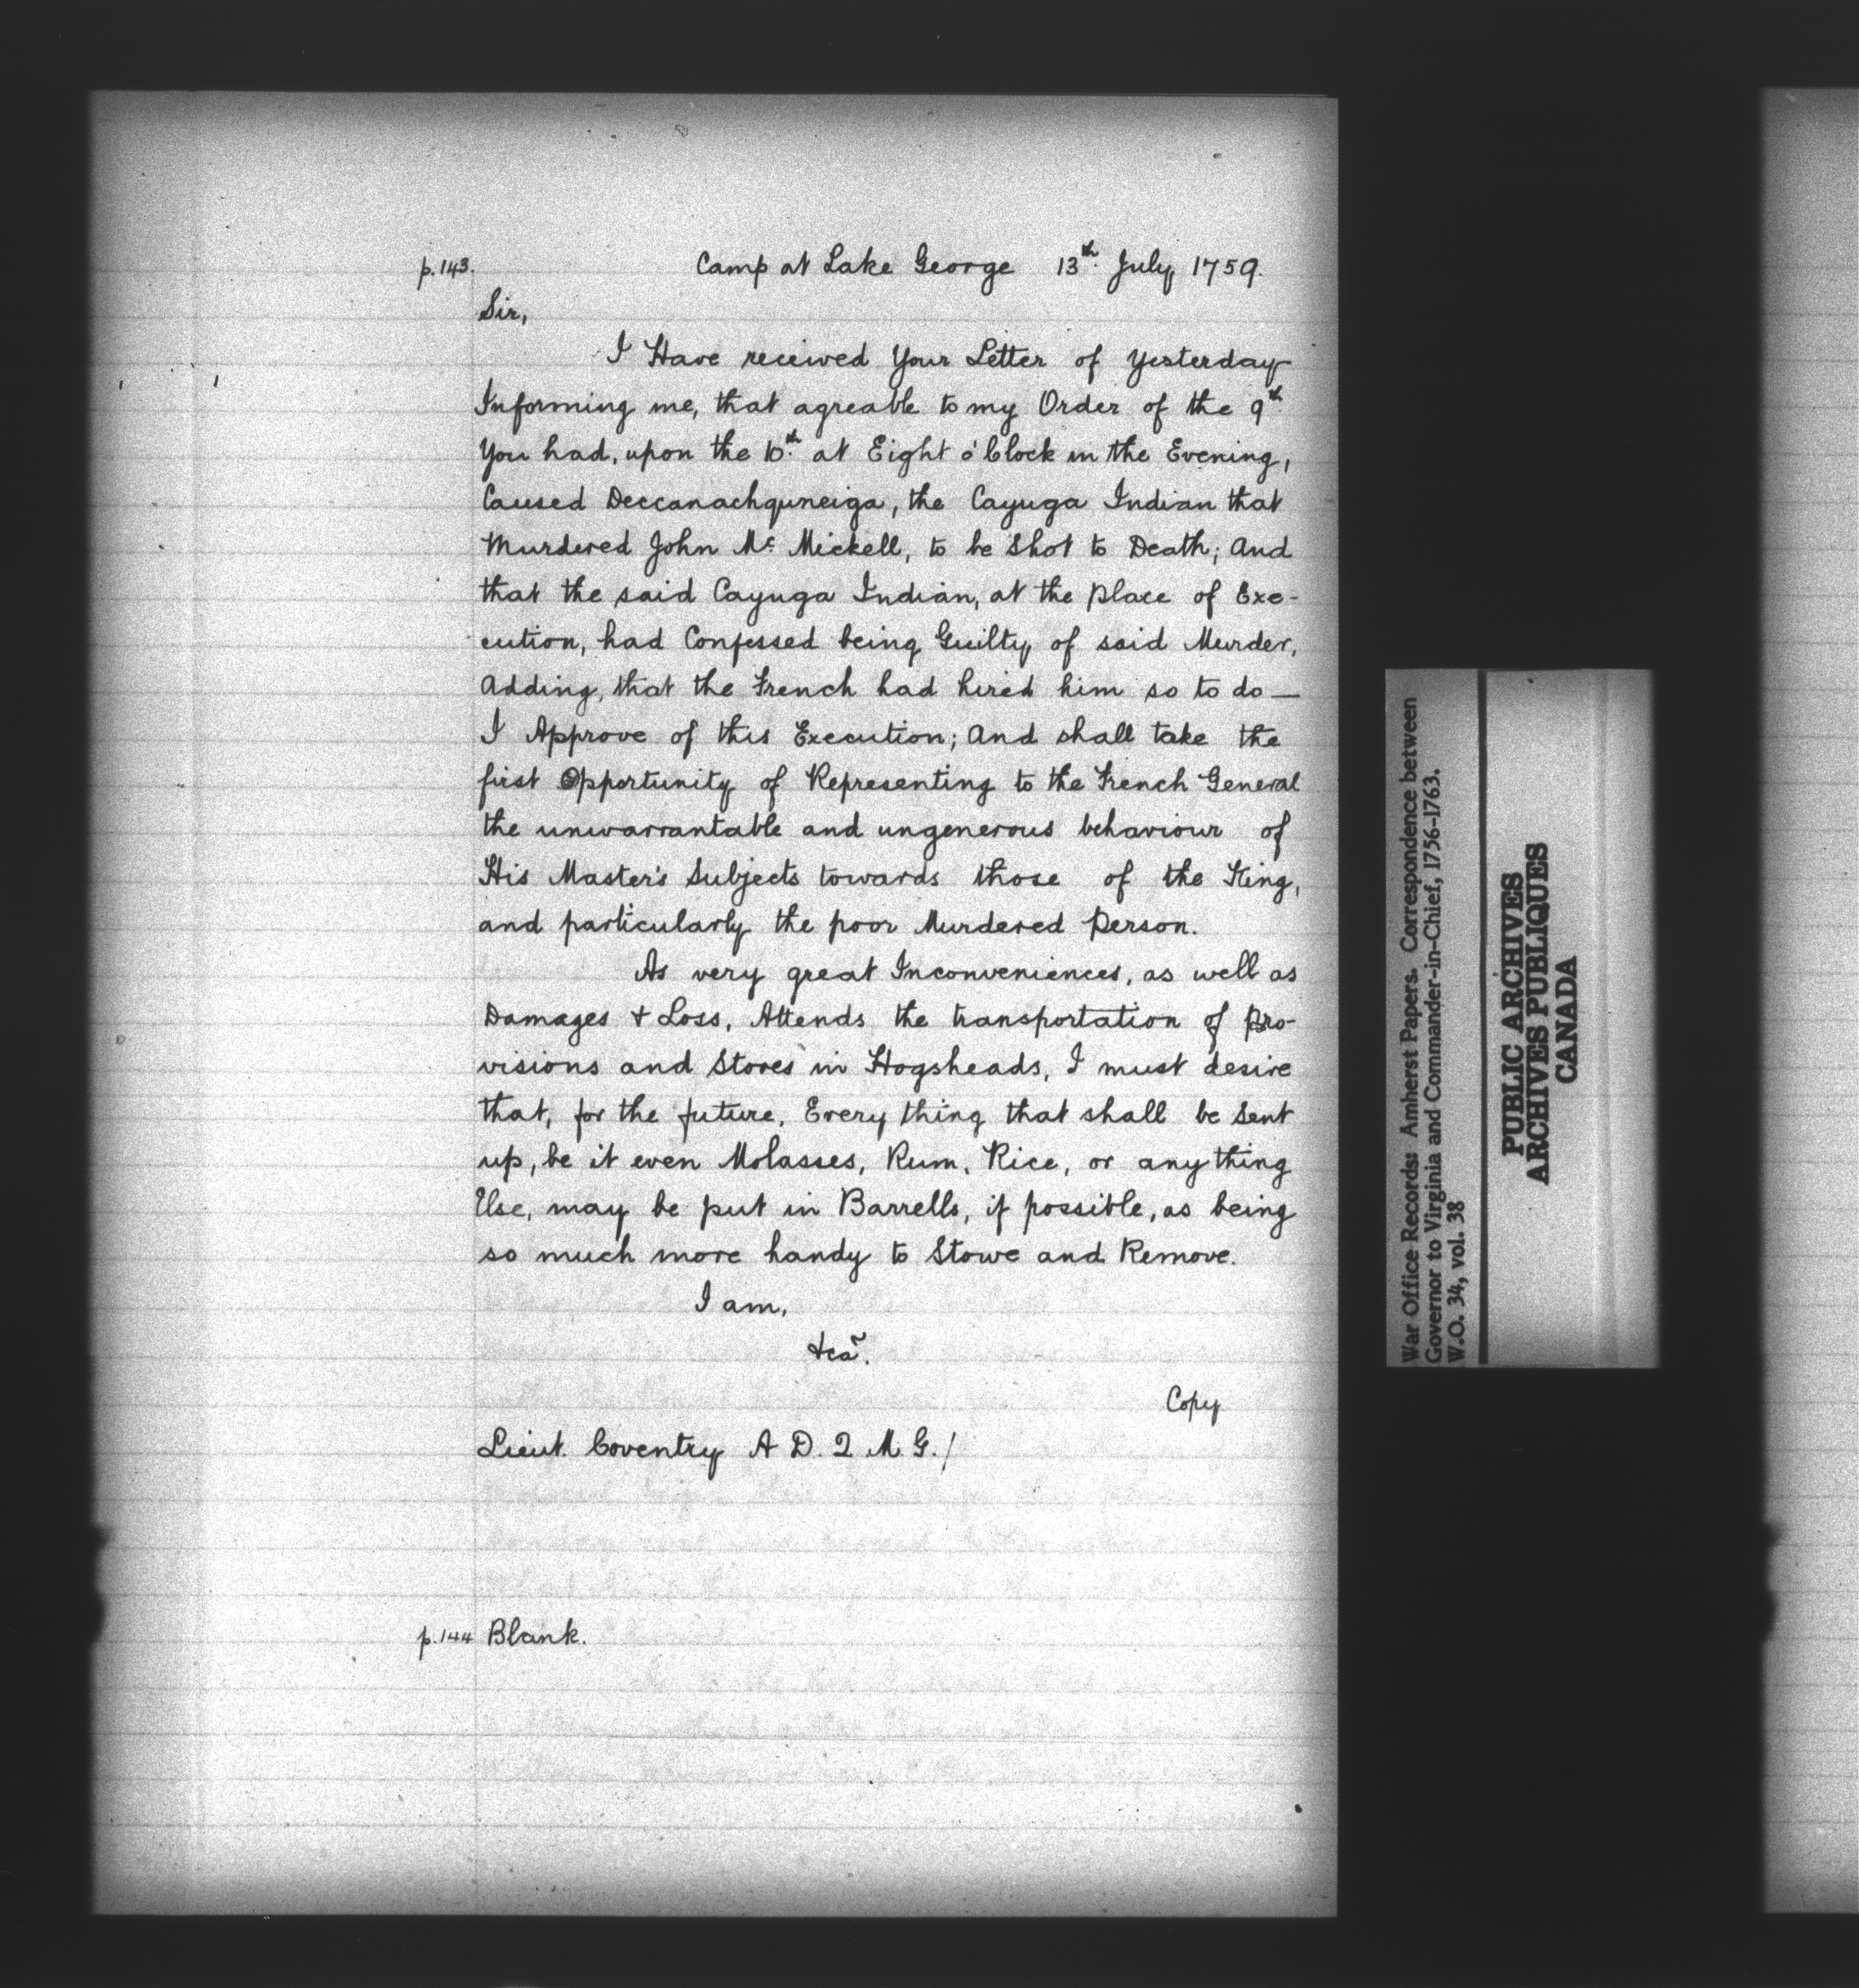 p.143. Camp at Lake George 13th. July 1759.
Sir,
I Have received Your Letter of Yesterday
Informing me, that agreable to my Order of the 9th.
You had, upon the 10th. at Eight o'Clock in the Evening,
Caused Deccanachquneiga, the Cayuga Indian that
Murdered John Mc Mickell, to be Shot to Death; And
that the said Cayuga Indian, at the place of Exe-
cution, had Confessed being Guilty of said Murder,
Adding, that the French had hired him so to do —
I Approve of this Execution; And shall take the
first Opportunity of Representing to the French General
the unwarrantable and ungenerous behaviour of
His Master's Subjects towards those of the King,
and particularly the poor Murdered Person.
As very great Inconveniences, as well as
Damages & Loss, Attends the transportation of Pro-
visions and Stores in Hogsheads, I must desire
that, for the future, Every thing that shall be Sent
up, be it even Molasses, Rum, Rice, or any thing
Else, may be put in Barrells, if possible, as being
so much more handy to Stowe and Remove.
I am,
&ca.
Copy
Lieut. Coventry A D. Q M. G./
p.144 Blank.
War Office Records: Amherst Papers. Correspondence between
Governor to Virginia and Commander-in-Chief, 1756-1763.
W.O. 34, vol. 38
PUBLIC ARCHIVES
ARCHIVES PUBLIQUES
CANADA